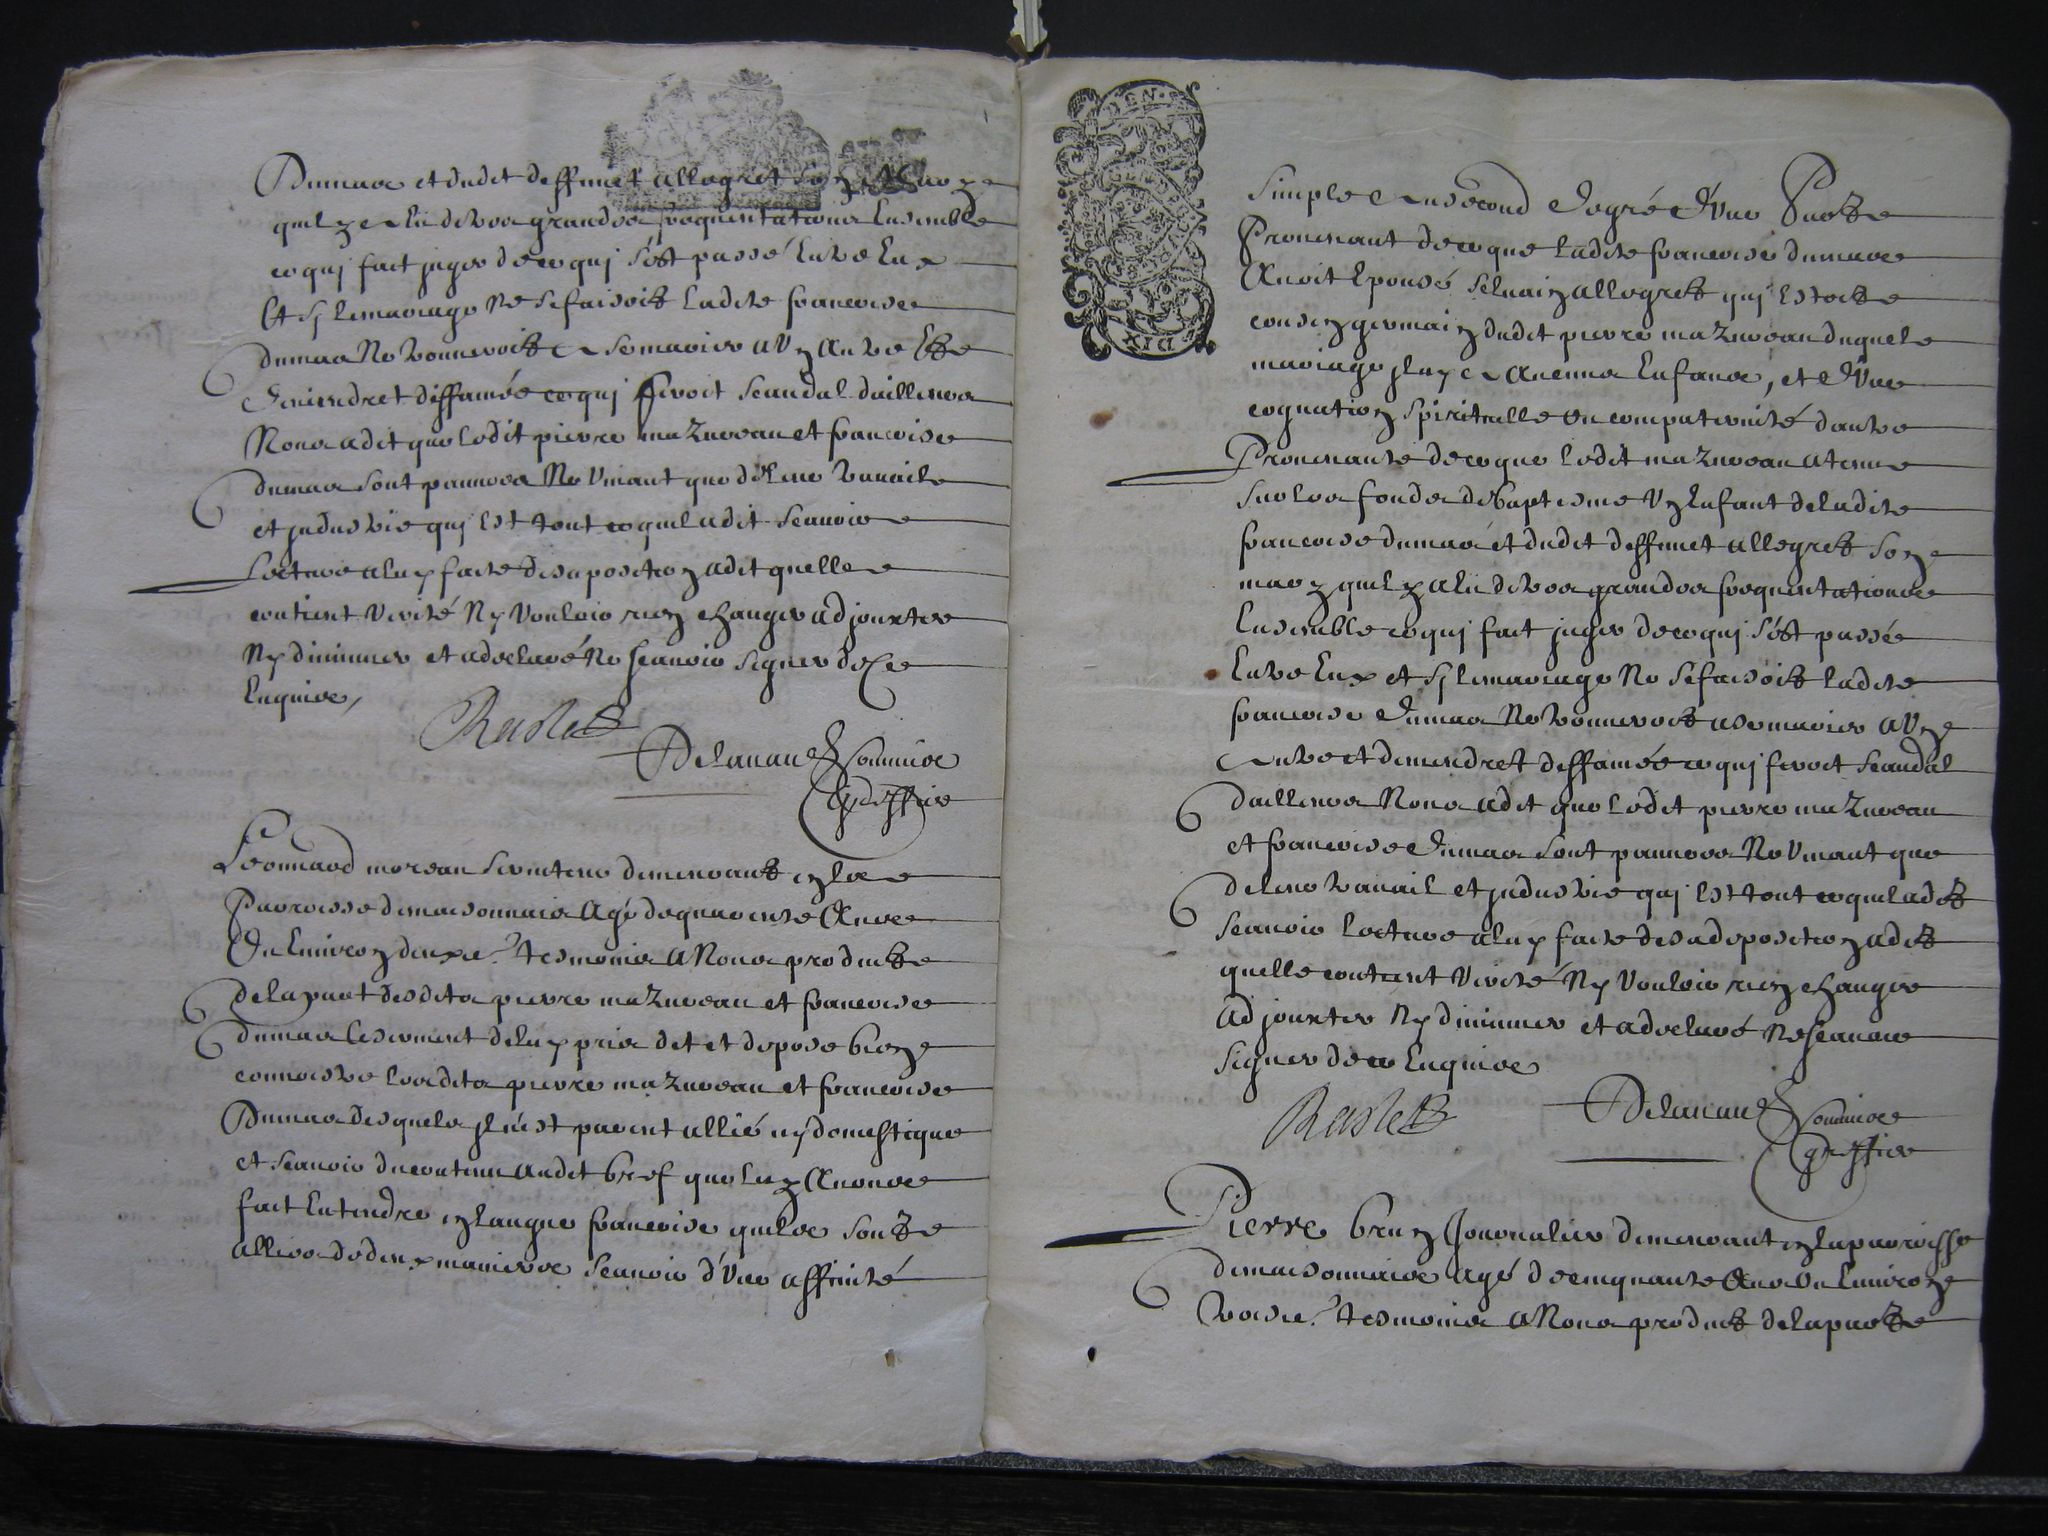 Dumas et dudit deffunct allegret son Mary
quilz e eu de tres grandes frequentations Ensemble
ce qui fait juger de ce qui s'est passé Entre Eux
Et sy le mariage ne se faisoit ladite francoise
dumas ne trouveroit a se marier a un Autre Et
demeudret diffamée ce qui seroit scandal dailleurs
Nous a dit que ledit pierre mazureau et francoise
dumas sont pauvres Ne Vivant que de leur travaile
et industrie qui Est tout ce quil a dit scavoir
Lecture a luy faite de sa deposition a dit quelle
contient Verité Ny Vouloir rien changer adjouxter
Ny diminuer et a declaré Ne scavoir signer de ce
Enquire,
Raslet
Delavaud Commire
Greffier
Leonnard moreau serviteur demeurant en la
Parroisse de maisonnais Agé de quarente Ans
Ou Environ deuxe. tesmoins A Nous produict
de la part desdits pierre mazureau et francoise
dumas le serment de luy pris dit et depose bien
connoistre lesdits pierre mazureau et francoise
Dumas desquels il n'est parent allié ny domestique
et scavoir du contenu audit bref que luy Avons
fait Entendre en langue francoise quilz sont
alliés de deux manieres scavoir d'Une affinité
simple Au second degré d'Une Part
Provenant de ce que ladite francoise dumas
Avoit Epousé selvain allegret qui Estoit
cousin germain dudit pierre mazureau duquel
mariage il y e Aucuns Enfans, et d'Une
cognation spirituelle ou compaternité dautre
Provenante de ce que ledit mazureau a tenu
sur les fonds de baptesme Un Enfant de ladite
francoise dumas et dudit deffunct allegret son
mary quilz a Eu de tres grandes frequentations
Ensemble ce qui fait juger de ce qui s'est passée
Entre Eux et sy le mariage Ne se faisoit ladite
francoise dumas Ne trouveroit a se marier a Un
Autre et demeudret diffamée ce qui seroit scandal
dailleurs Nous a dit que ledit pierre mazureau
et francoise dumas sont pauvres Ne Vivant que
de leur travail et industrie qui Est tout ce quil a dit
scavoir Lecture a luy faite de sa deposition a dit
quelle contient Verité Ny Vouloir rien changer
Adjouxter Ny diminuer et a declaré Ne scavoir
signer de ce Enquire
Raslet
Delavaud Commire
greffier
Pierre brun Journalier demeurant en la parroisse
de maisonnais agé de cinquante Ans Ou Environ
troisie. tesmoins A Nous produit de la part
DIX DEN.